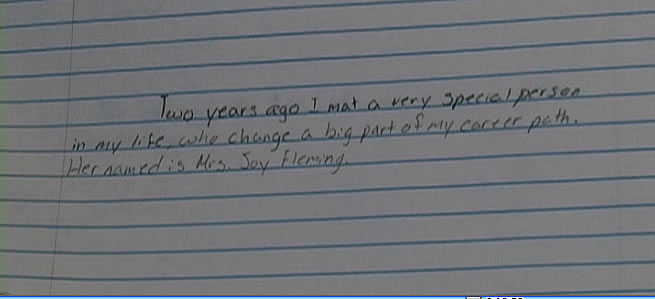 Two years ago I mat a very special person
in my life, who change a big part of my career path.
Her named is Mrs. Joy Fleming.